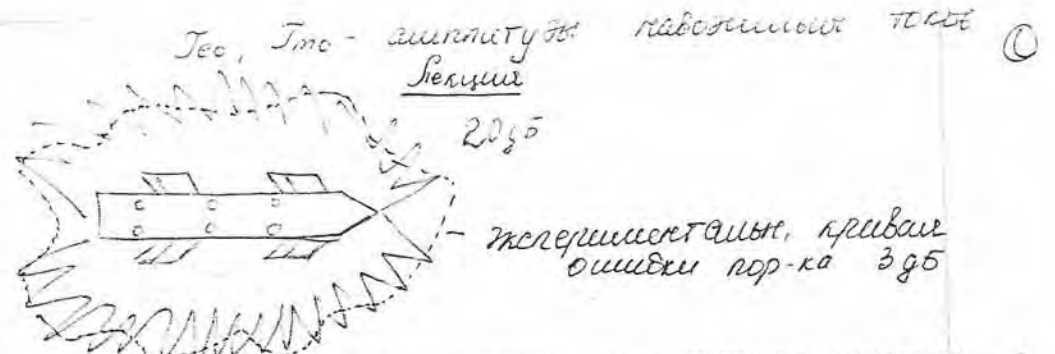 Jeo, Jmo - амплитуды наводимых токов
Лекция
20дБ
экспериментальн. кривая
ошибки пор-ка 3дБ